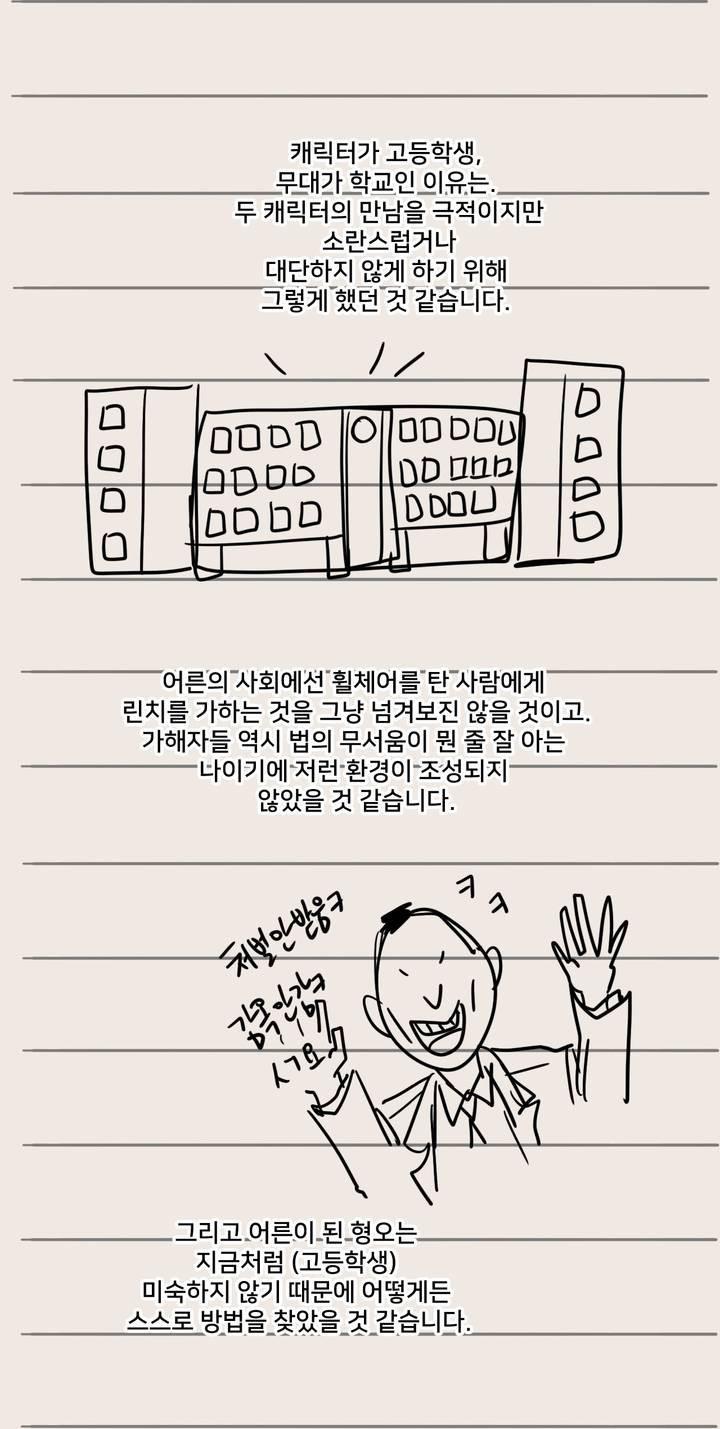 캐릭터가 고등학생,
무대가 학교인 이유는.
두 캐릭터의 만남을 극적이지만
소란스럽거나
대단하지 않게 하기 위해
그렇게 했던 것 같습니다.
어른의 사회에선 휠체어를 탄 사람에게
린치를 가하는 것을 그냥 넘겨보진 않을 것이고.
가해자들 역시 법의 무서움이 뭔 줄 잘 아는
나이기에 저런 환경이 조성되지
않았을 것 같습니다.
ㅋ ㅋ
처벌안받음ㅋ
감옥안감
그리고 어른이 된 형오는
지금처럼 (고등학생)
미숙하지 않기 때문에 어떻게든
스스로 방법을 찾았을 것 같습니다.